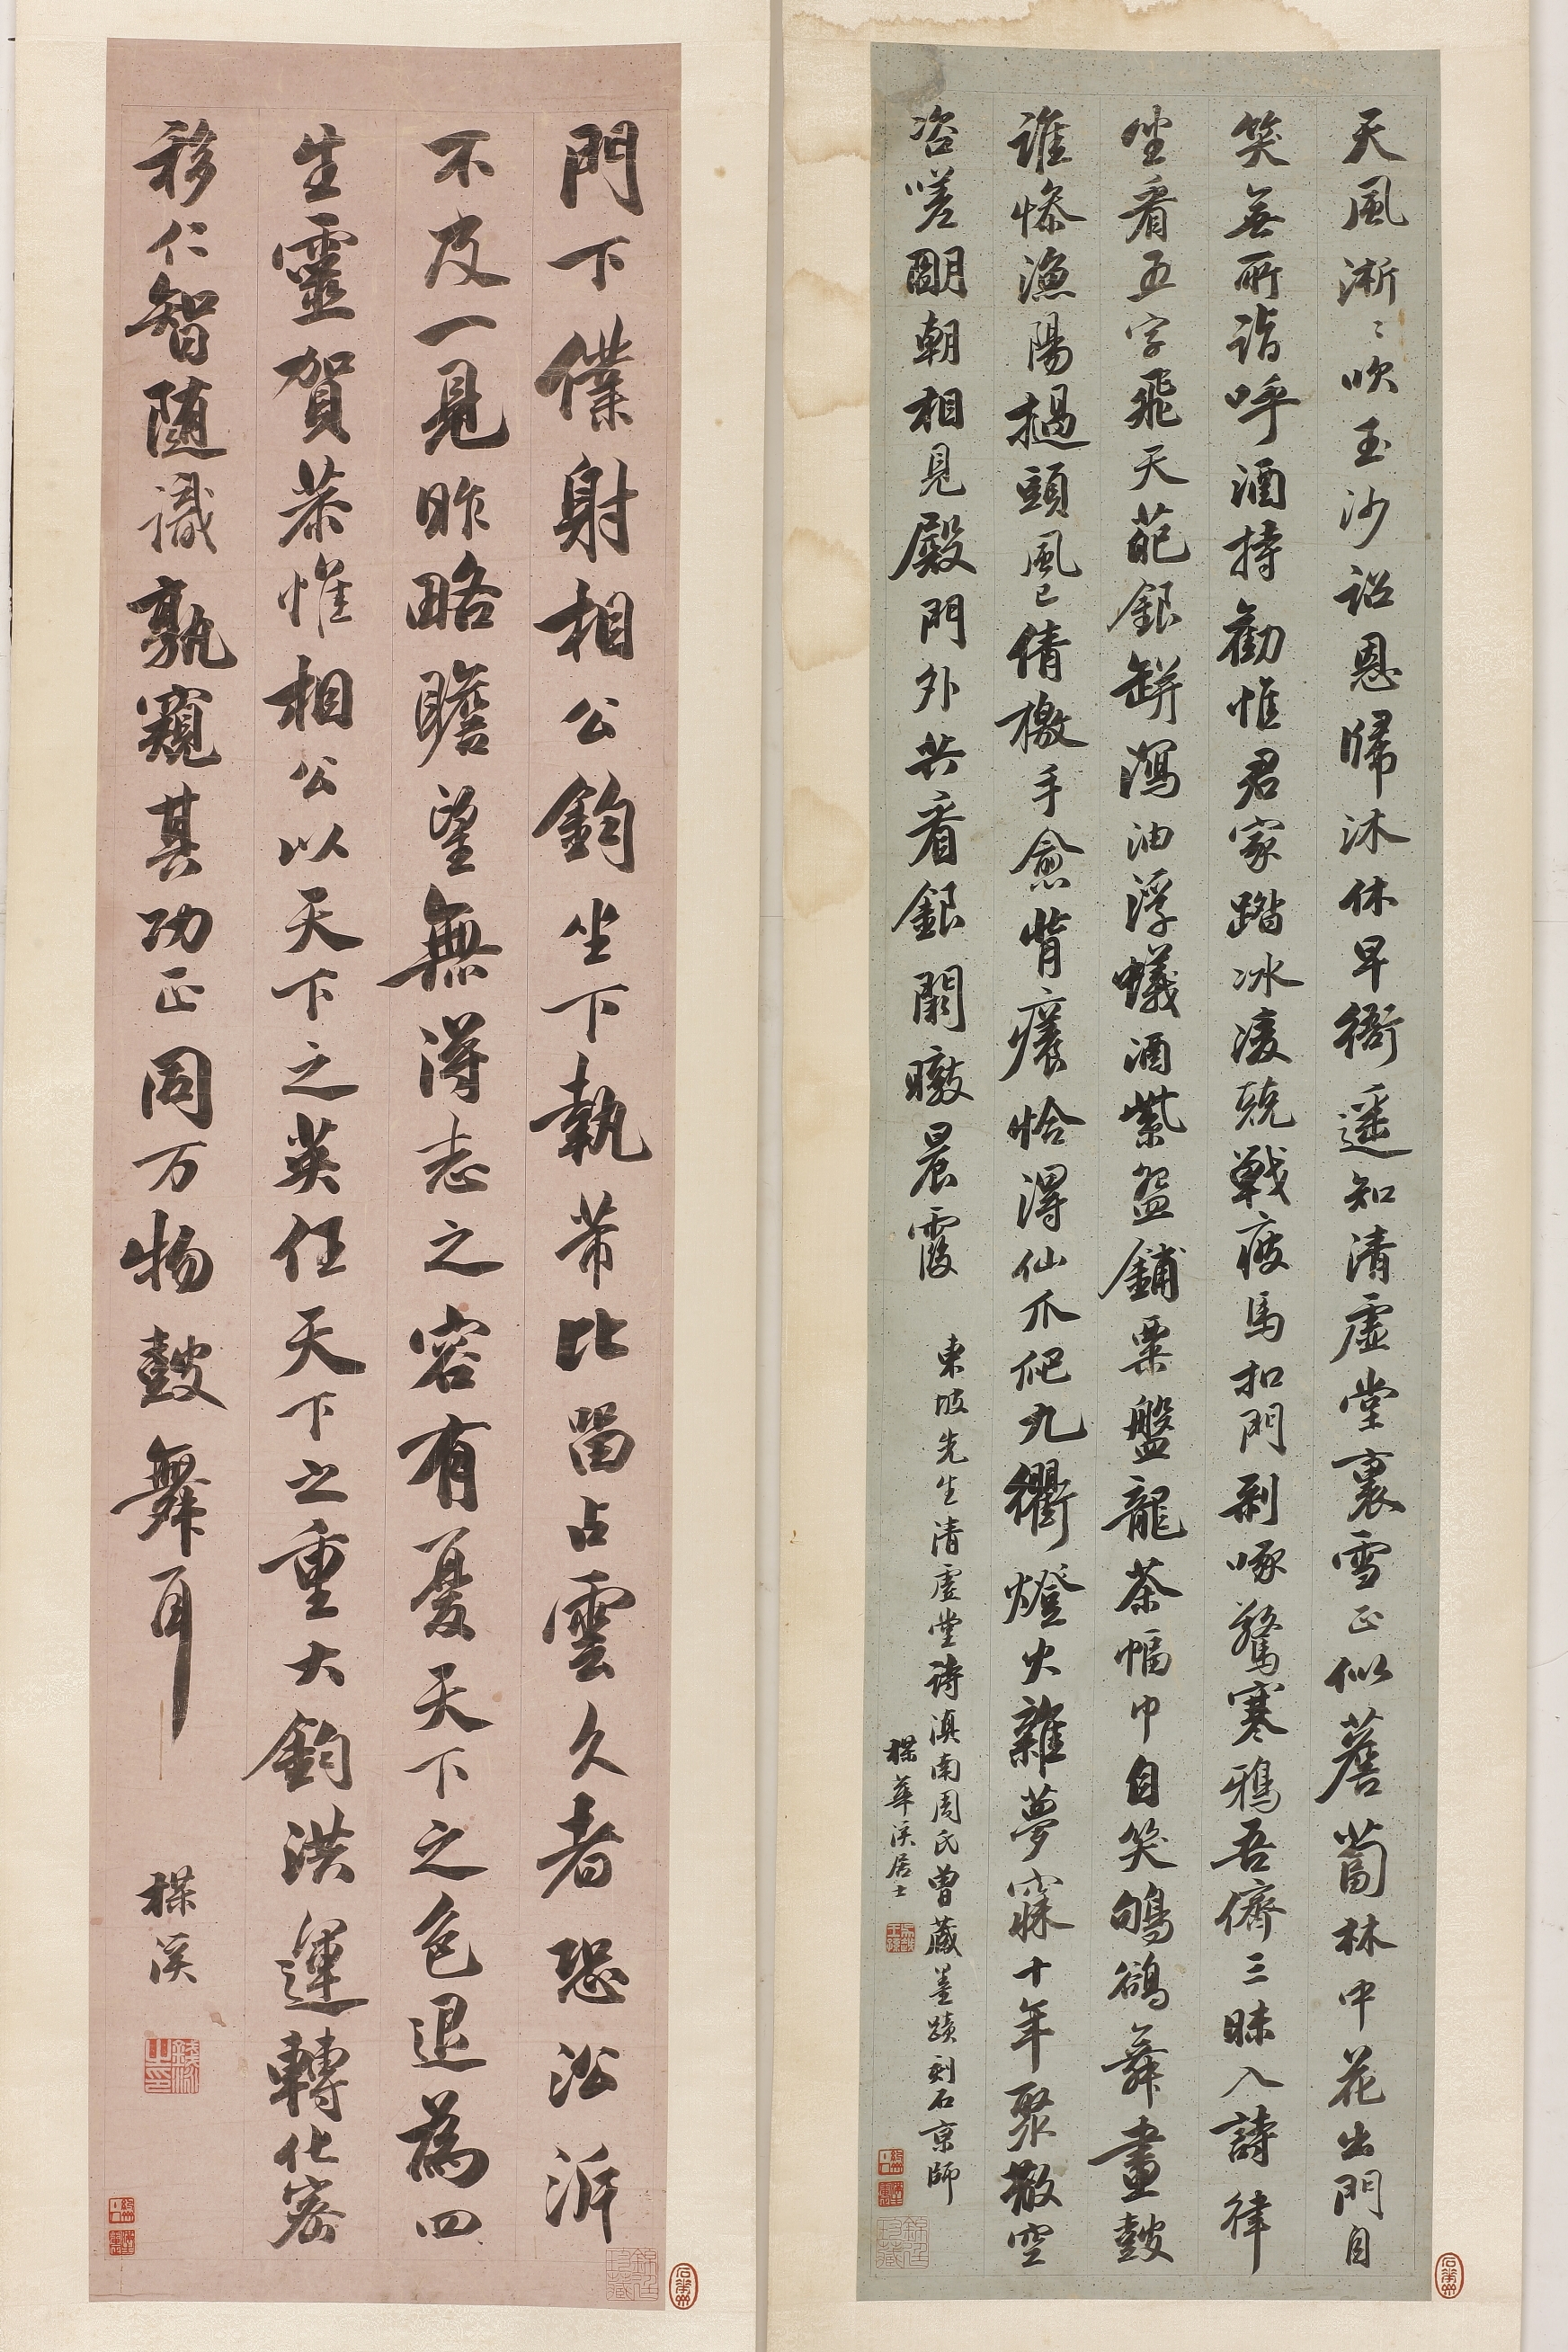 天風淅〻吹玉沙詔恩歸沐休早衙遥知清虚堂裏雪正似薝蔔林中花出門自
笑無所詣呼酒持勸惟君家踏冰凌兢戰疲馬扣門剥啄驚寒鴉吾儕三昧入詩律
坐看五字飛天葩銀缾瀉油浮蟻酒紫盌鋪粟盤龍茶幅巾自笑鴝鵒舞畫鼓
誰慘漁陽撾頭風已倩檄手愈背癢恰得仙爪爬九衢燈火雜夢寐十年聚散空
咨嗟朙朝相見殿門外共看銀闕暾晨霞
東坡先生清虚堂詩滇南周氏曾藏墨蹟刻石京師
楳華溪居士
門下僕射相公鈞坐下執芾比留占雲久者恐訟訴
不及一見昨略瞻望無得志之容有憂天下之色退為四
生靈賀恭惟相公以天下之英任天下之重大鈞洪運轉化密
移仁智随識孰窺其功正同万物鼓舞耳
楳溪